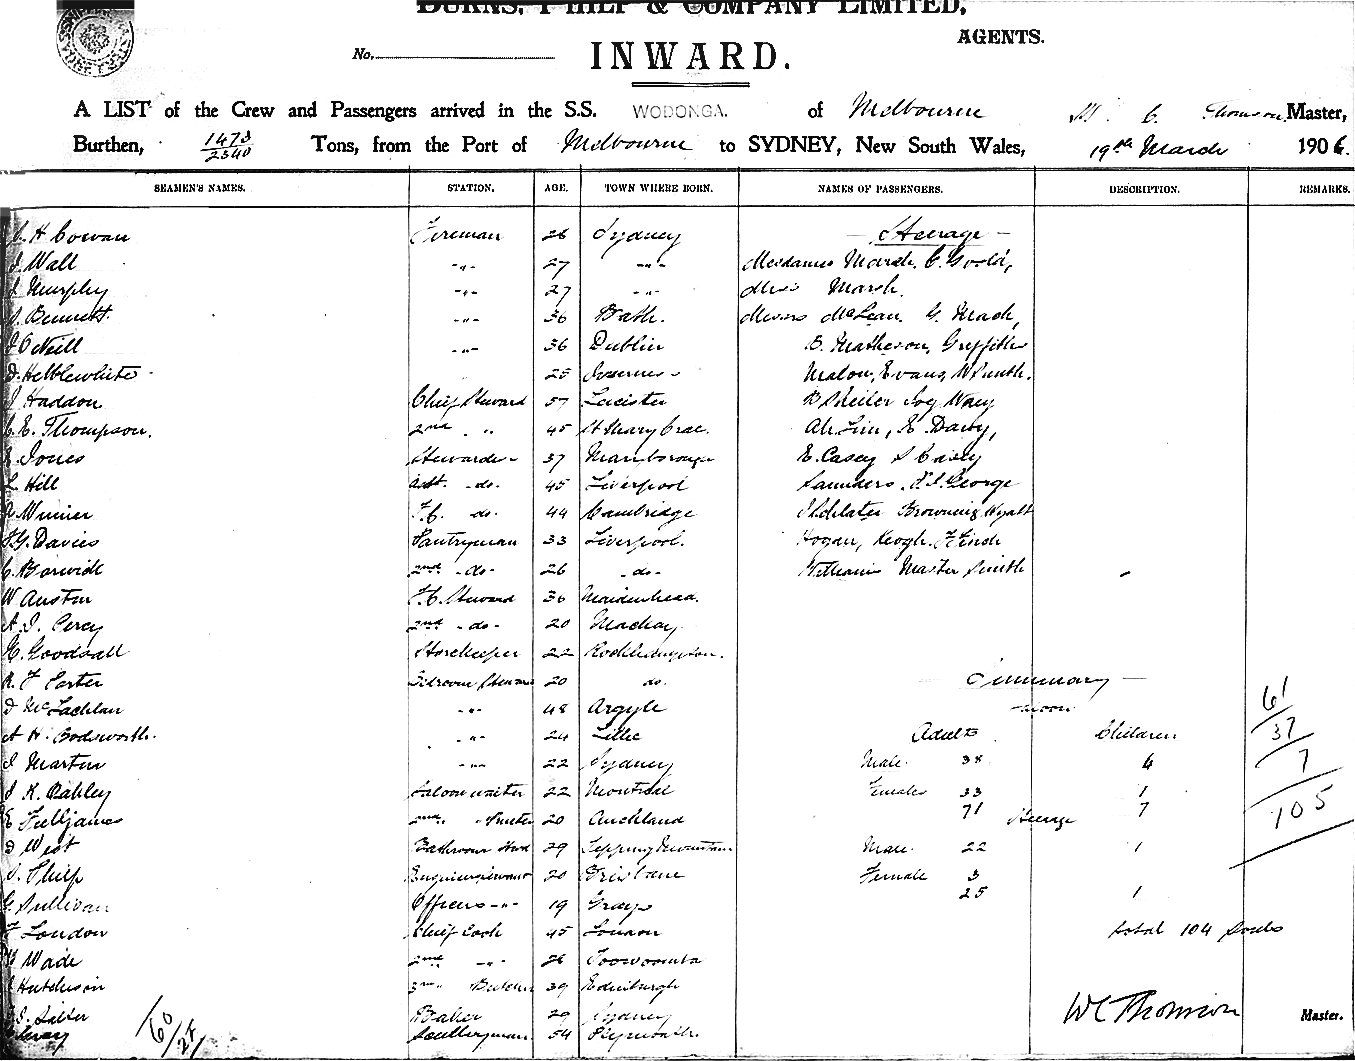 BURNS, PHILP & COMPANY LIMITED,
AGENTS.
No.
INWARD.
A LIST of the Crew and Passengers arrived in the S.S. WODONGA. of Melbourne C. Thomson Master,
Burthen, 1473/2340 Tons, from the Port of Melbourne to SYDNEY, New South Wales, 19th March 1906.
SEAMEN'S NAMES. STATION. AGE. TOWN WHERE BORN. NAMES OF PASSENGERS. DESCRIPTION. REMARKS.
H Cowan Fireman 26 Sydney — Steerage —
J Wall -"- 27 -"- Mesdames Marsh, C. Goold,
J Murphy -"- 27 -"- Miss Marsh.
Bennett -"- 36 Bath. Messrs McLean, G. Mach,
J O'Neill -"- 36 Dublin B. Matheson, Griffiths
D. Hebblewhite 25 Malon, Evans, W Smith.
J Haddon Chief Steward 57 Leicister
C. E. Thompson. 2nd " 45 St Mary Crae. Ah Lin, Davy,
Jones Stewardess 37 Marlborough E. Casey S Casey
L Hill Asst. do. 45 Liverpool Saunders, George
F.C. do. 44 Cambridge Browning, Hyatt
F.G. Davies Pantryman 33 Liverpool. Hogan, Keogh, F. Finch
C. Borwick 2nd - do- 26 - do - Williams Master Smith
W Austin F.C. Steward 36 Maidenhead.
A. J. Percy 2nd - do - 20 Mackay.
H. Goodsall Storekeeper 22 Rockhampton.
R. F Carter Steward 20 do. — Summary —
D McLachlan -"- 48 Argyle Saloon 61
A H. Bodsworth. -"- 24 Adults Children 37
J Martin -"- 22 Sydney Male 38 4 7
J K. Oakley Saloon waiter 22 Montreal Females 33 1
E Fulljames 2nd 20 Auckland 71 Steerage 7 105
D West 29 Male 22 1
J. Philp 20 Brisbane Female 3
G. Sullivan Officers -"- 19 Grays 25 1
F London Chief Cook 45 London total 104 Souls
Wade 2nd -"- 26 Toowoomba
Hutchison 3rd Butcher 39 Edinburgh
Baker 29 Sydney W C Thomson Master.
60/24 Sculleryman 54 Plymouth